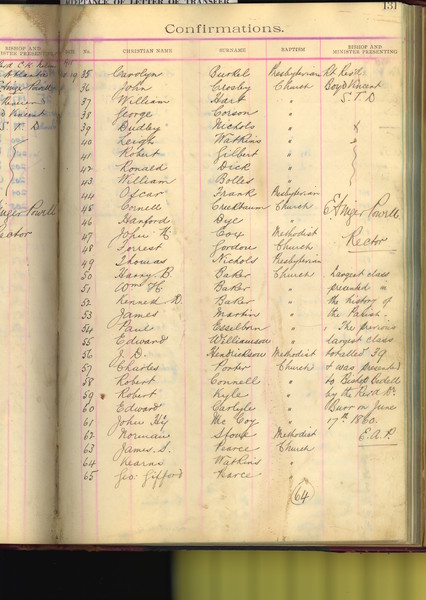 ACCEPTANCE OF LETTER OF TRANSFER
131
Confirmations.
BISHOP AND MINISTER PRESENTING No. CHRISTIAN NAME SURNAME BAPTISM BISHOP AND MINISTER PRESENTING
35 Carolyn Presbyterian Rt Revd
36 John Crosby Church Boyd Vincent
37 William Hart " S. T. D
38 George Corson "
39 Dudley Nichols "
40 Leigh Watkins "
41 Robert Gilbert "
42 Ronald Dick "
43 William Bolles "
44 Oscar Frank Presbyterian
45 Cornell Church
46 Hanford Dye "
47 John H Cox Methodist
48 Forrest Gordon Church
49 Thomas Nichols Presbyterian
50 Harry B Baker Church
51 Wm H Baker "
52 Kenneth D Baker "
53 James Martin "
54 Paul Esselborn "
55 Edward Williamson "
56 J. D. Hendrickson Methodist
57 Charles Porter Church
58 Robert Connell "
59 Robert Kyle "
60 Edward Carlyle "
61 John Mc Coy "
62 Norman Methodist
63 James S. Pearce Church
64 Watkins "
65 Geo: Gifford Pearce "
64
Powell
Rector
Largest class
presented in
the history of
the Parish.
The previous
largest class
totalled 39
& was presented
to Bishop Bedell
by the Revd Dr
Burr on June
17th 1860.
E. A. P.
Powell
Rector